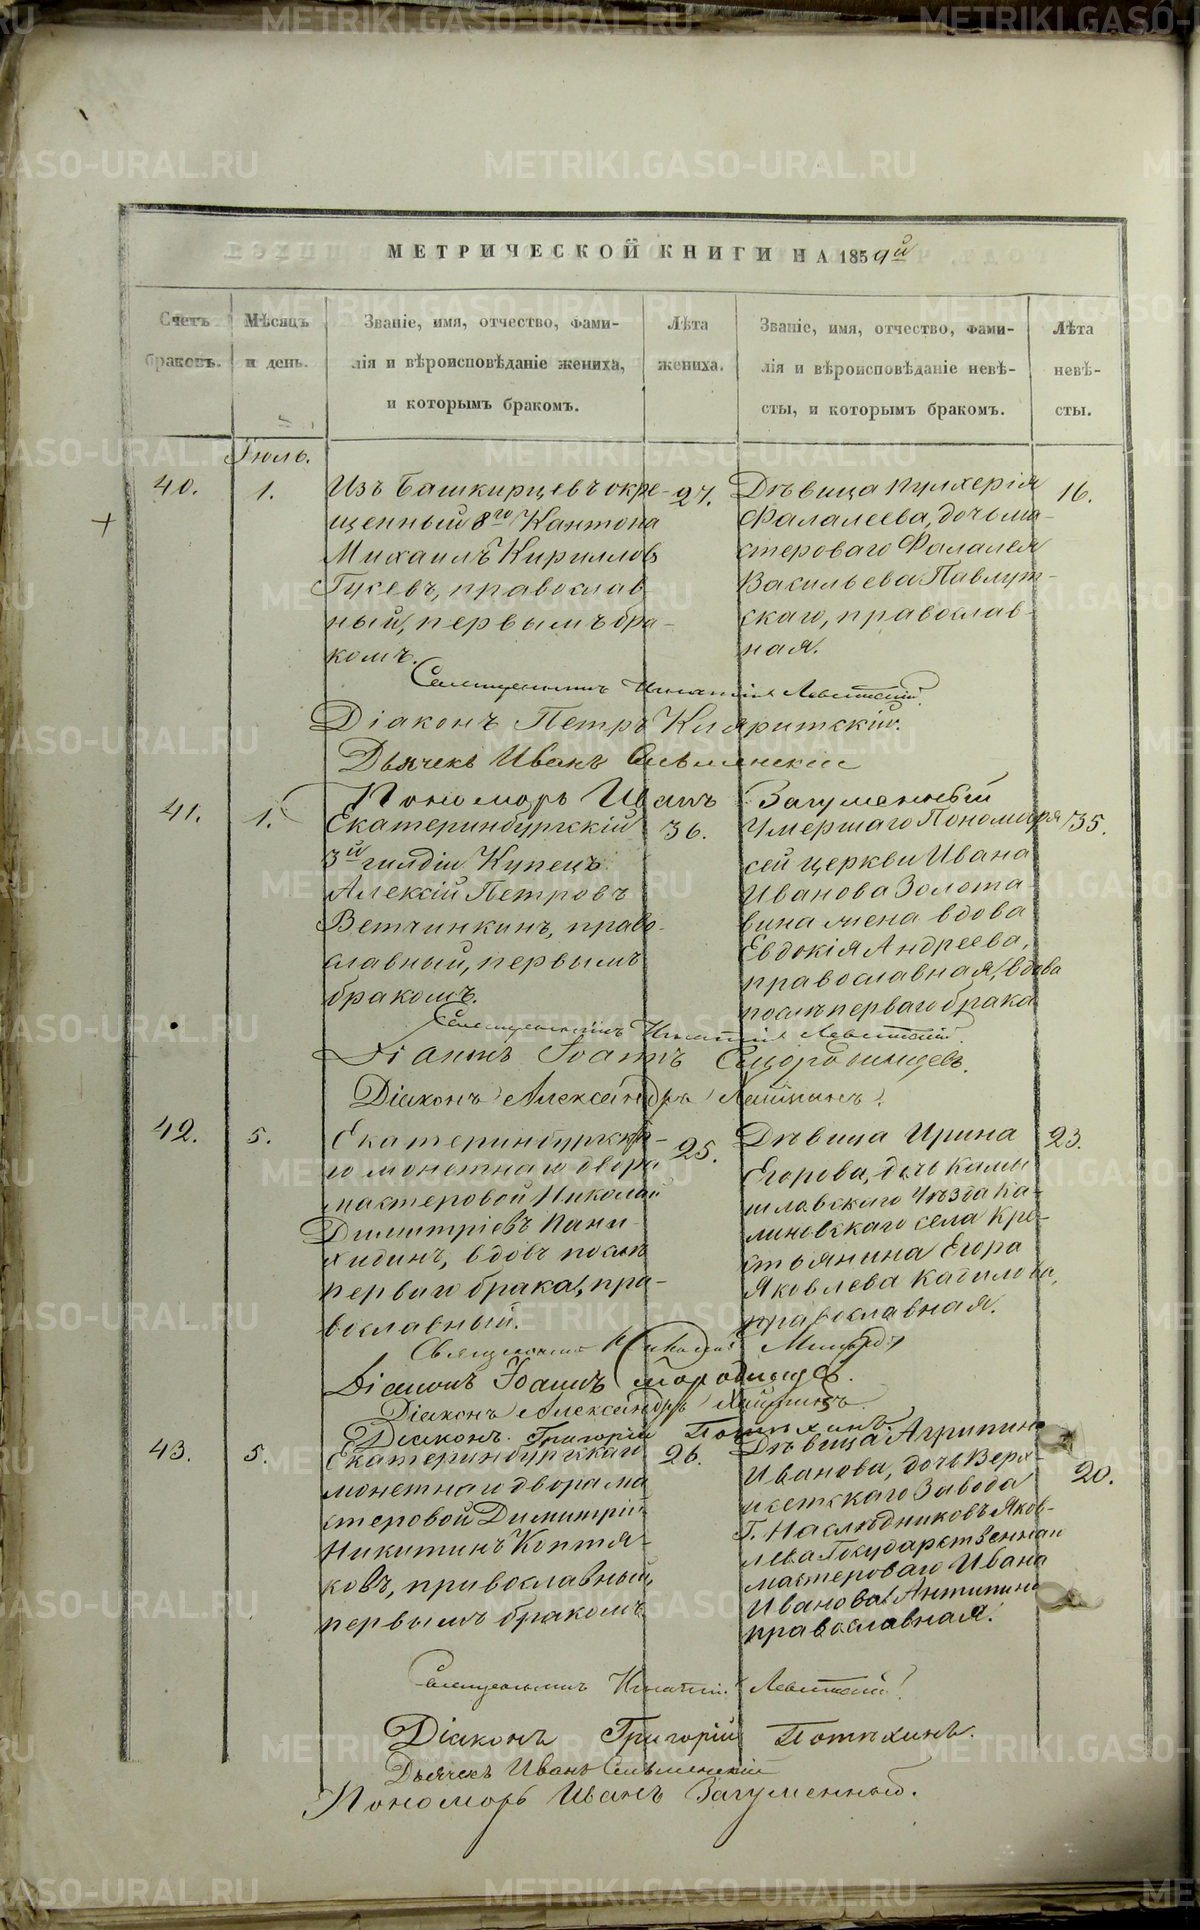 МЕТРИЧЕСКОЙ КНИГИ НА 1859й
Счетъ браковъ.
Мѣсяцъ и день.
Званіе, имя, отчество, фами-
лія и вѣроисповѣданіе жениха,
и которымъ бракомъ.
Лѣта жениха.
Званіе, имя, отчество, фами-
лія и вѣроисповѣданіе невѣ-
сты, и которымъ бракомъ.
Лѣта невѣ-
сты.
Іюль.
40.
1.
Изъ Башкирцевъ окре-
щенный 8го Кантона
Михаилъ Кирилловъ
Гукевъ, православ
ный, первымъ бра-
комъ.
27.
Дѣвица Пулхерія
Фалалеева, дочь ма-
стероваго Фалалея
Васильева Павлут-
скаго, православ-
ная.
16.
Священникъ Игнатій Левитскій.
Діаконъ Петръ Кляритскій.
Дьячекъ Иванъ
Пономарь Иванъ Загуменный
41.
1.
Екатеринбургскій
3й гилдіи Купецъ
Алексій Петровъ
Ветчинкинъ, право-
славный, первымъ
бракомъ.
36.
Умершаго Пономаря
сей церкви Ивана
Иванова Золота-
вина жена вдова
Евдокія Андреева,
православная, вдова
послѣ перваго брака
35.
Священникъ Игнатій Левитскій.
Діаконъ Іоаннъ
Діаконъ Александръ
42.
5.
Екатеринбургска-
го монетнаго двора
мастеровой Николай
Димитріевъ Пани-
хидинъ, вдовъ послѣ
перваго брака, пра-
вославный.
25.
Дѣвица Ирина
Егорова, дочь Камы
шловскаго Уѣзда Ка-
линовскаго села Кре-
стьянина Егора
Яковлева Кадилова,
православная.
23.
Священникъ Николай
Діаконъ Іоаннъ
Діаконъ Александръ
Діаконъ Григорій Потѣхинъ.
43.
5.
Екатеринбургскаго
монетнаго двора ма
стеровой Димитрій
Никитинъ Коптя-
ковъ, православный,
первымъ бракомъ
26.
Дѣвица Агрипина
Иванова, дочь Верх-
исетскаго Завода
Г. Наслѣдниковъ Яков-
лева Государственнаго
мастероваго Ивана
Иванова Антипина
православная.
20.
Священникъ Игнатій Левитскій.
Діаконъ Григорій Потѣхинъ.
Дьячекъ Иванъ
Пономарь Иванъ Загуменный.
METRIKI.GASO-URAL.RU